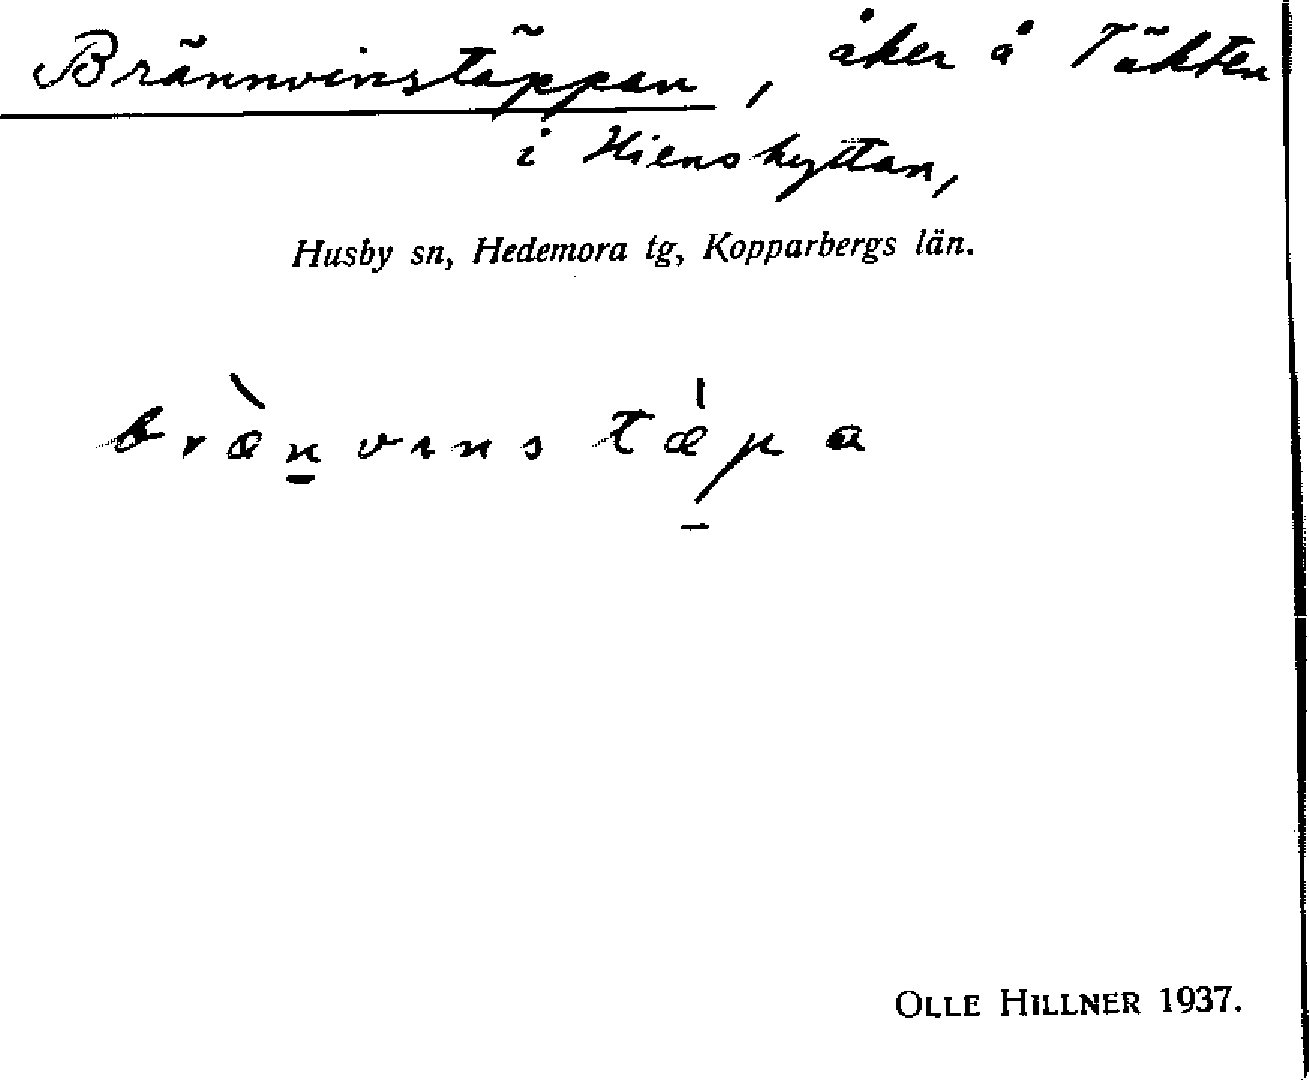 Brännvinstäppan, åker å Täkten
i Hienshyttan,
Husby sn, Hedemora tg, Kopparbergs län.
bræ̀n̲vɩns tæ̍p̲a
OLLE HILLNER 1937.